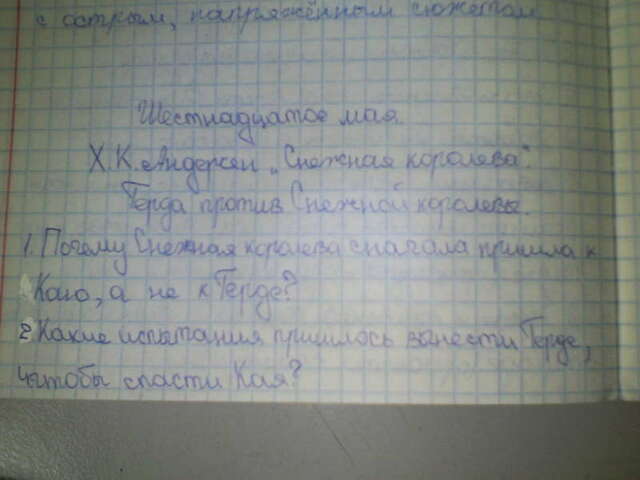 с острым, напряжённым сюжетом
Шестнадцатое мая.
Х.К. Андерсен „Снежная королева".
Герда против Снежной королевы.
1. Почему Снежная королева сначала пришла к
Каю, а не к Герде?
2. Какие испытания пришлось вынести Герде,
чтобы спасти Кая?